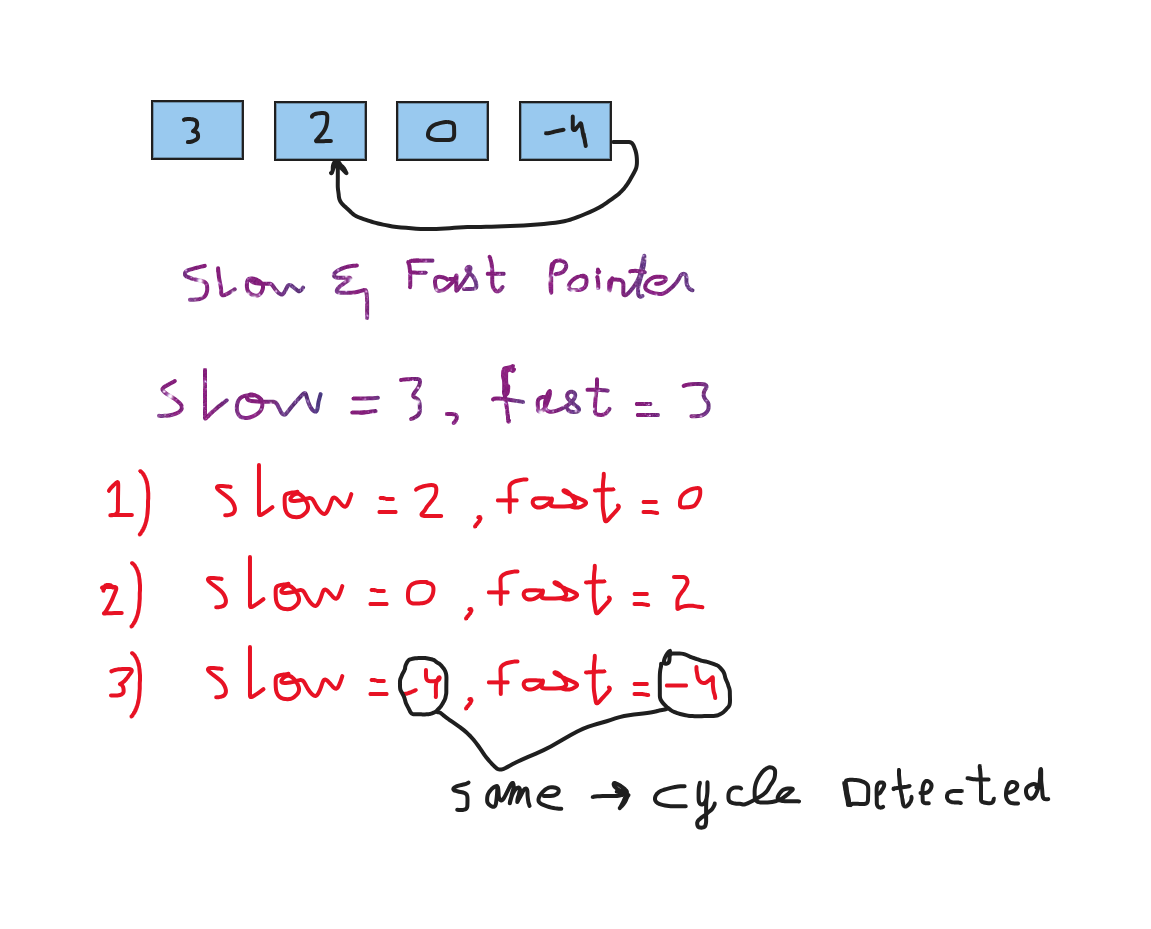 3 2 0 -4
Slow & Fast Pointer
slow = 3, fast = 3
1) slow = 2, fast = 0
2) slow = 0, fast = 2
3) slow = -4, fast = -4
same → cycle Detected